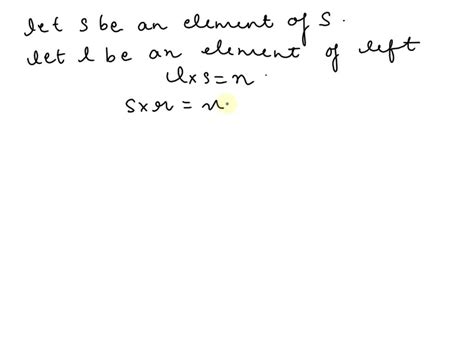 let s be an element of S.
let l be an element of left
l x s = n.
s x r = n.